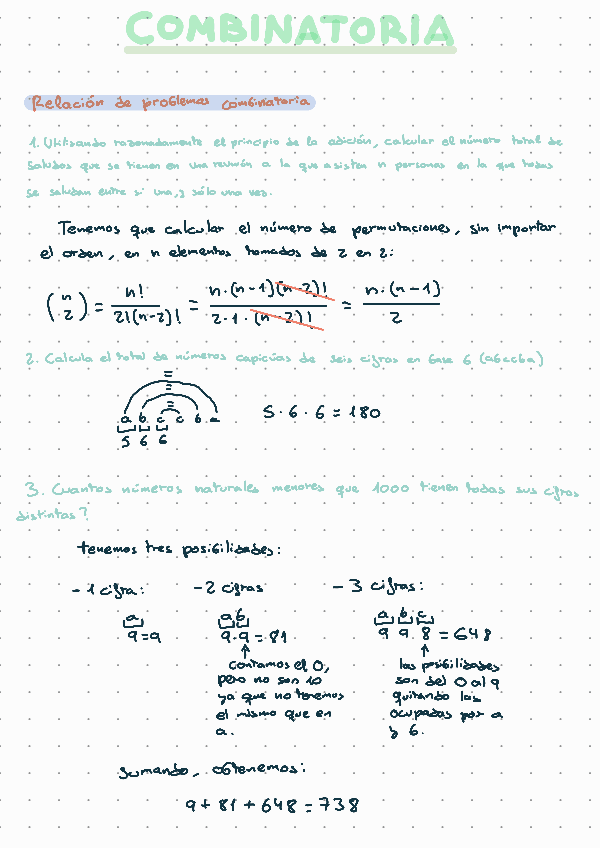 COMBINATORIA
Relación de problemas combinatoria
1. Utilisando razonadamente el principio de la adición, calcular el número total de
saludos que se tienen en una reunión a la que asisten n personas en la que todas
se saludan entre sí una, y sólo una vez.
Tenemos que calcular el número de permutaciones, sin importar
el orden, en n elementos tomados de 2 en 2:
(n 2) = n! / 2!(n-2)! = n·(n-1)(n-2)! / 2·1·(n-2)! = n·(n-1) / 2
2. Calcula el total de números capicúas de seis cifras en base 6 (abccba)
=
=
=
a b c c b a
5 6 6
5·6·6 = 180
3. Cuantos números naturales menores que 1000 tienen todas sus cifras
distintas?
tenemos tres posibilidades:
- 1 cifra: - 2 cifras - 3 cifras:
a ab a b c
9 = 9 9·9 = 81 9 9 8 = 648
↑ ↑
contamos el 0, las posibilidades
pero no son 10 son del 0 al 9
ya que no tenemos quitando las
el mismo que en ocupadas por a
a. y b.
Sumando, obtenemos:
9 + 81 + 648 = 738